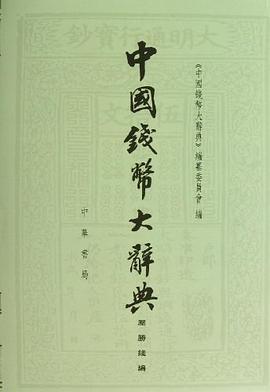 大明通行寶鈔
《中國錢幣大辭典》編纂委員會 編
中國錢幣大辭典
壓勝錢編
中華書局